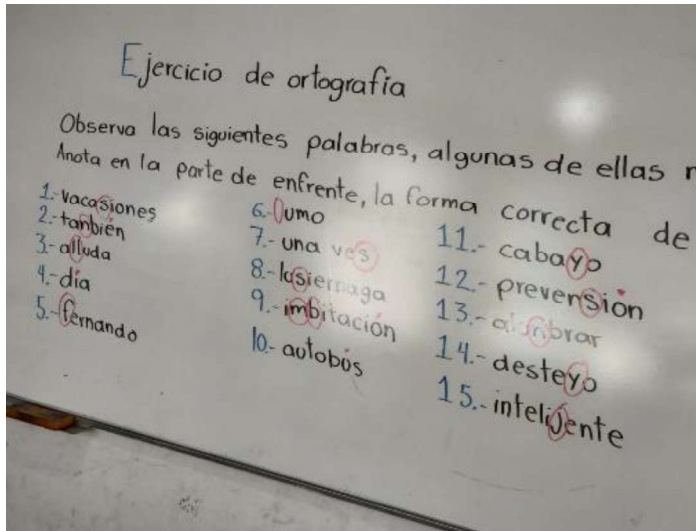 Ejercicio de ortografía
Observa las siguientes palabras, algunas de ellas
Anota en la parte de enfrente, la forma correcta de
1.- vacasiones
2.- tanbién
3.- alluda
4.- día
5.- fernando
6.- Jumo
7.- una ves
8.- lusiernaga
9.- imbitación
10.- autobús
11.- cabayo
12.- prevensión
13.- alunbrar
14.- desteyo
15.- intelijente